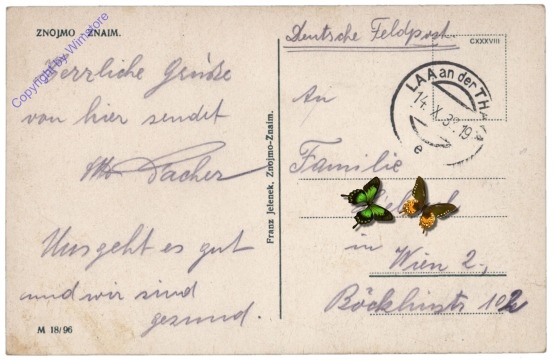 ZNOJMO ZNAIM.
Copyright by Winistore
Herzliche Grüße
von hier sendet
Pacher
Uns geht es gut
und wir sind
gesund.
M 18/96
Franz Jelenek, Znojmo-Znaim.
Deutsche Feldpost
CXXXVIII
LAA an der THAYA
14. X. 38. 19
e
An
Familie
in
Wien 2.,
102